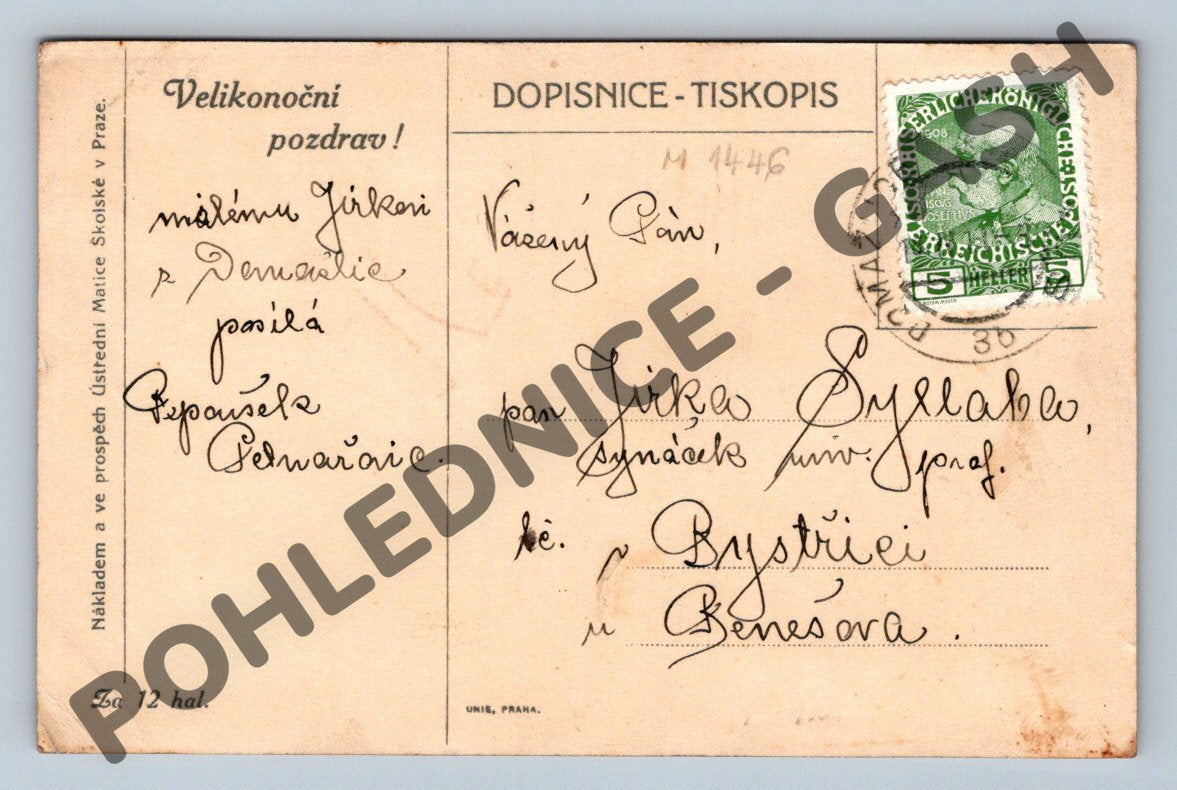 Velikonoční
pozdrav!
malému Jirkovi
z Domažlic
posílá
Pepoušek
Za 12 hal.
Nákladem a ve prospěch Ústřední Matice Školské v Praze.
DOPISNICE - TISKOPIS
M 1446
Vázený Pán,
pan Jirka Syllaba,
synáček univ. prof.
tč. v Bystřici
u Benešova.
UNIE, PRAHA.
KAISERLICHE KÖNIGLICHE ÖSTERREICHISCHE
1908
5 HELLER 5
3b
POHLEDNICE - GASH